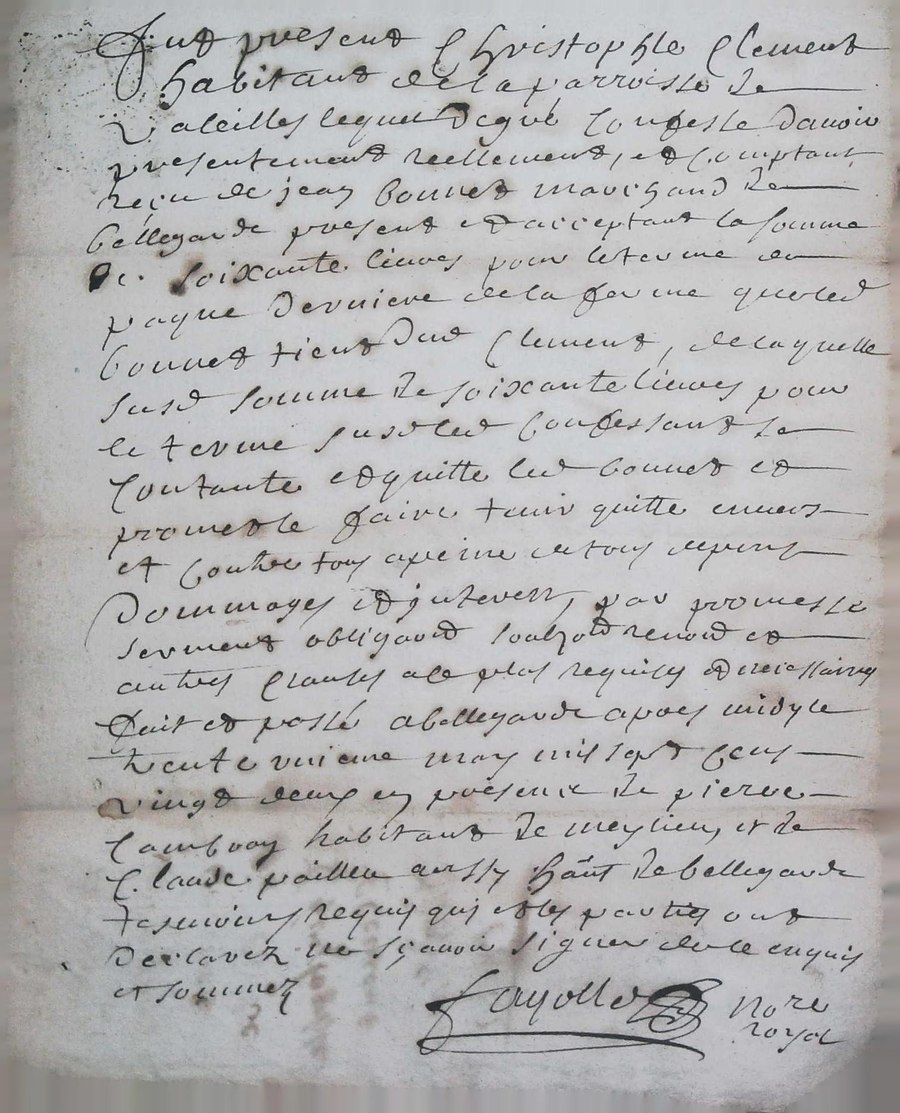 Fut present Christophle Clement
habitant de la parroisse de
Valeilles lequel de gré confesse davoir
presentement reellement, et comptant
reçu de jean bonnet marchand de
bellegarde present et acceptant la somme
de soixante livres pour le terme de
paque derniere de la ferme que led
bonnet tient dud Clement, de laquelle
susd somme de soixante livres pour
le terme susd led confessant se
contante et quitte led bonnet et
promet le faire tenir quitte envers
et contre tous a peine de tous depens
dommages et interest, par promesse
serment obligaōn soubz renon et
autres clauses a ce plus requises et necessaires
fait et passé a bellegarde apres midy le
trente unieme may mil sept cens
vingt deux en presence de pierre
habitant de meylieu, et de
Claude paillieu aussy hāñt de bellegarde
tesmoins requis qui et les parties ont
declarez ne sçavoir signer de ce enquis
et sommez
fayolle no.re
royal